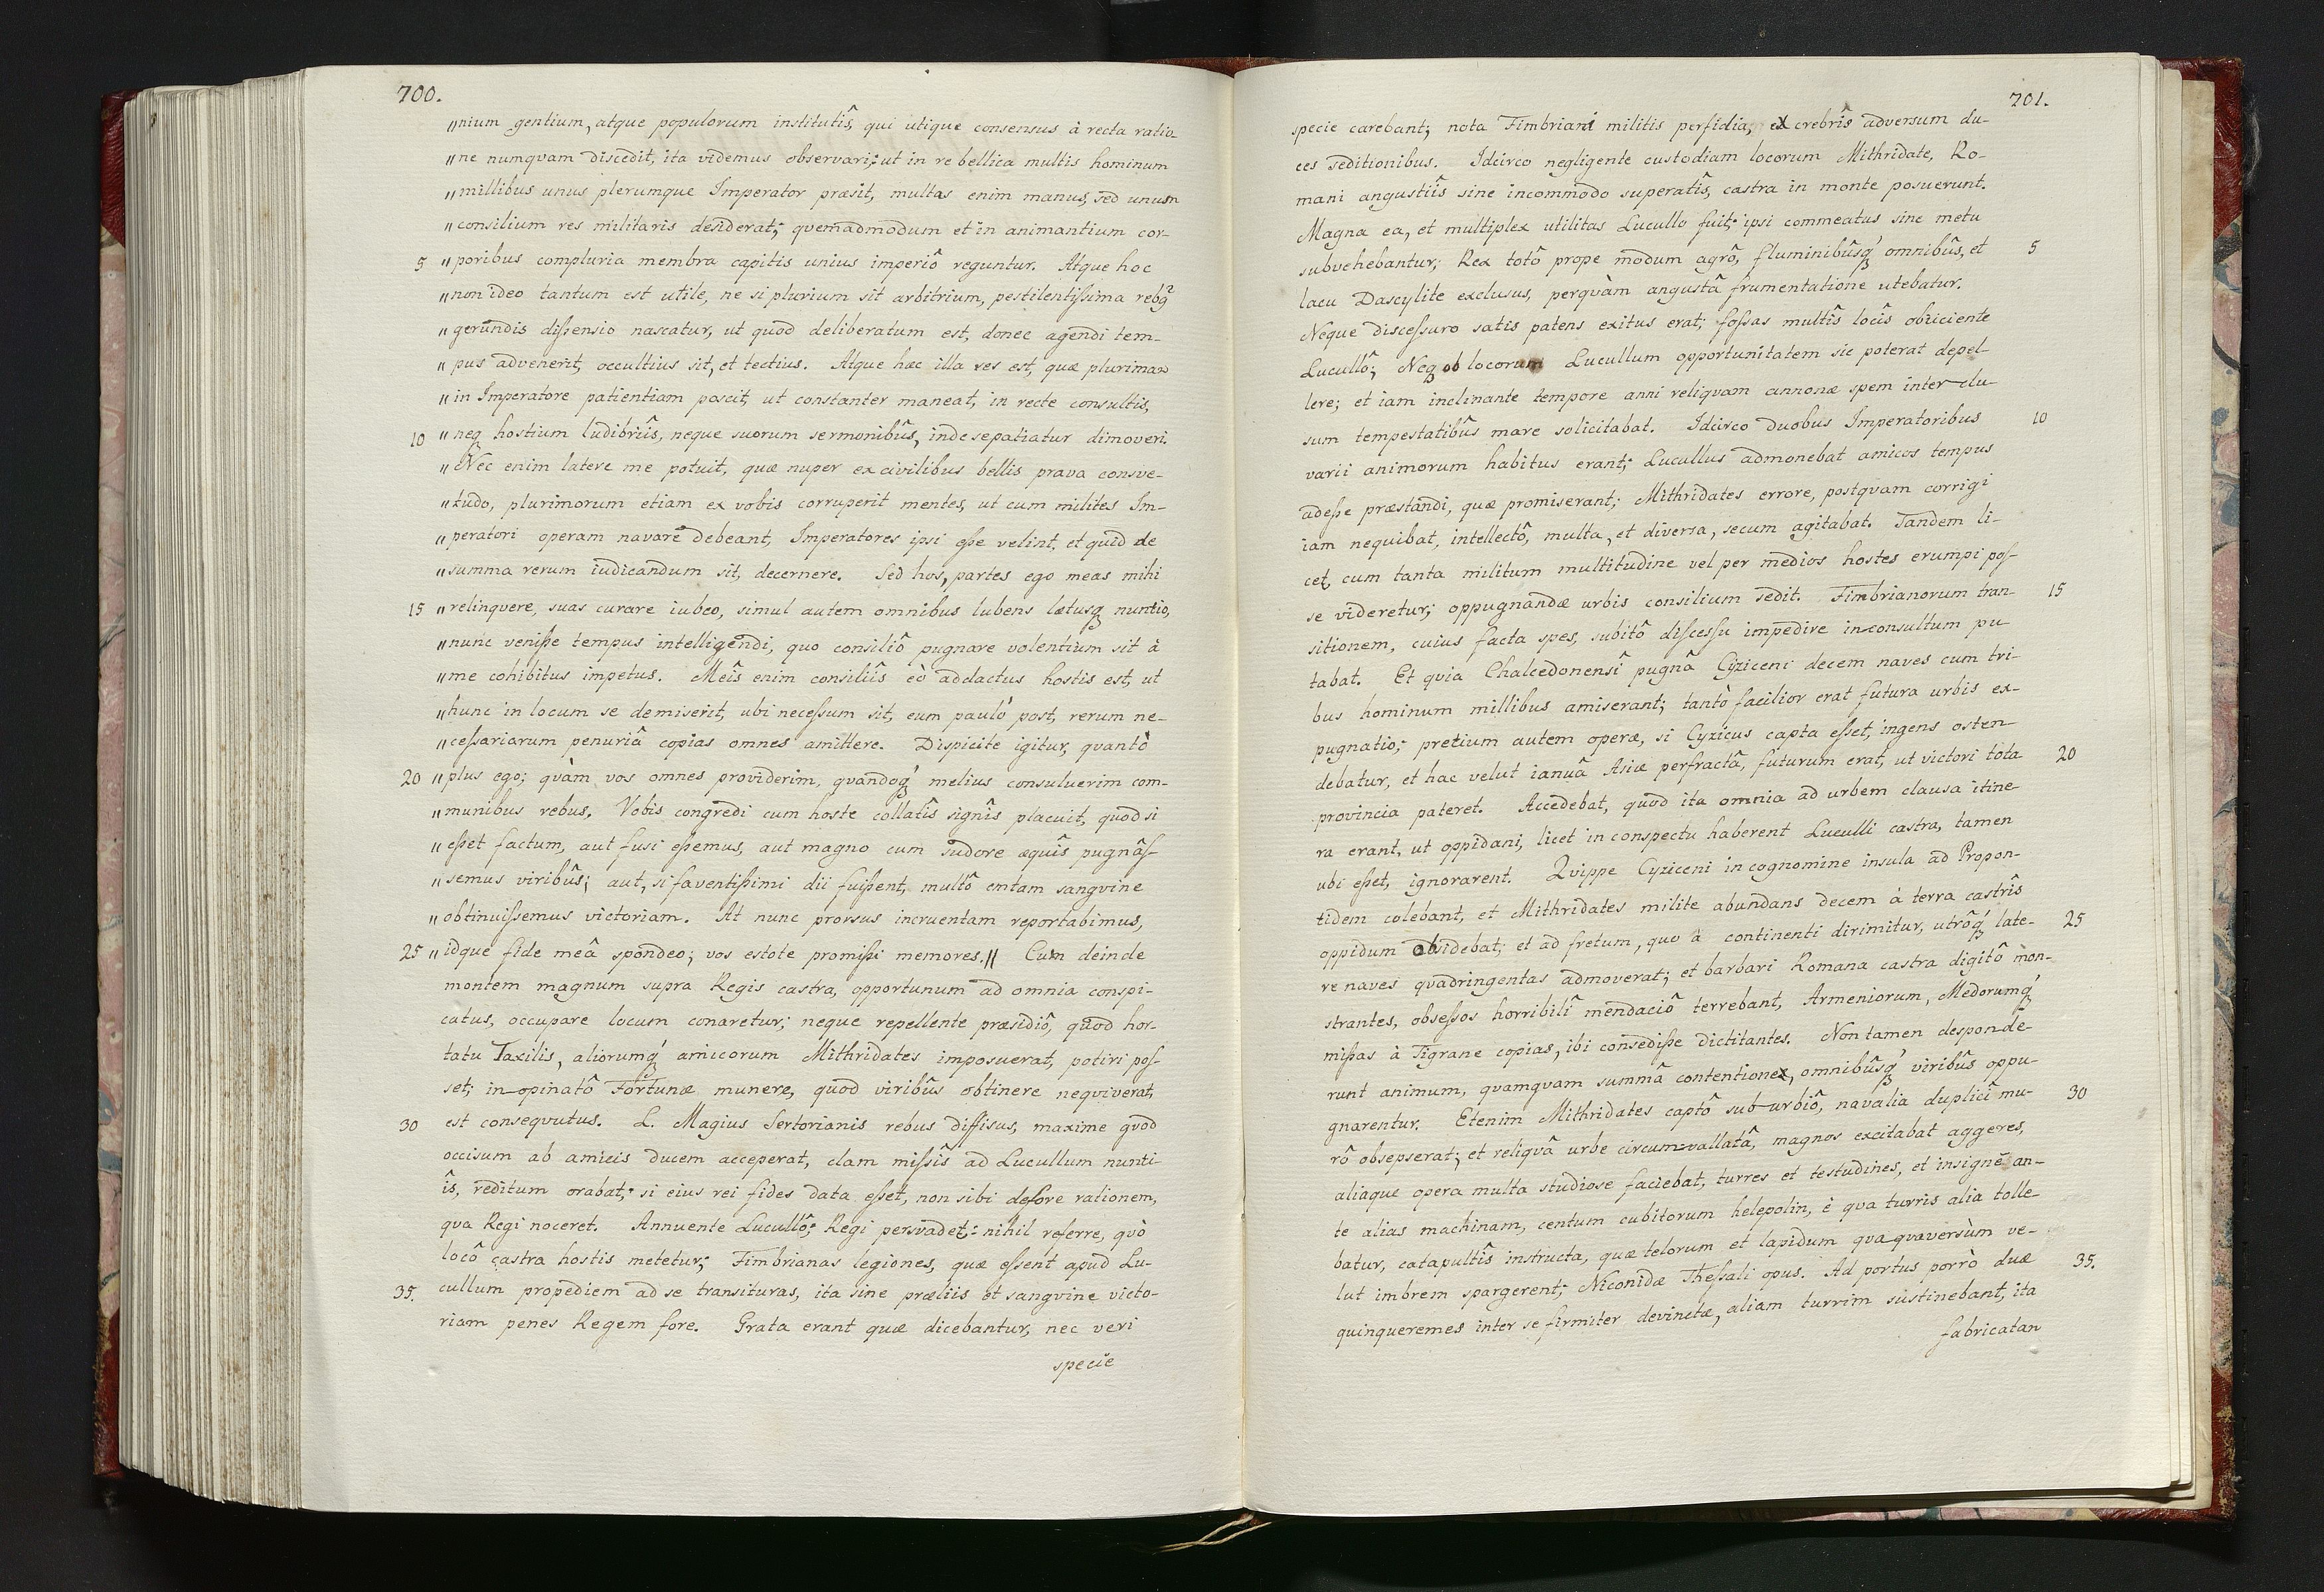 700.
"nium gentium, atque populorum institutîs, qui utique consensus à recta ratio
"ne numqvam discedit, ita videmus observari; ut in re bellica multis hominum
"millibus unus plerumque Imperator præsit, multas enim manus, sed unum
"consilium res militaris desiderat; qvemadmodum et in animantium cor-
5 "poribus compluria membra capitis unius imperiô reguntur. Atque hoc
"non ideo tantum est utile, ne si plurium sit arbitrium, pestilentißima rebq́
"gerundis dißensio nascatur, ut quod deliberatum est, donec agendi tem-
"pus advenerit, occultius sit, et tectius. Atque hæc illa res est, quæ plurimam
"in Imperatore patientiam poscit, ut constanter maneat, in recte consultis,
10 "neq hostium ludibriîs, neque suorum sermonibûs, inde se patiatur dimoveri.
"Nec enim latere me potuit, quæ nuper ex civilibus bellis prava consve-
"tudo, plurimorum etiam ex vobis corruperit mentes, ut cum milites Im-
"peratori operam navare debeant, Imperatores ipsi eße velint, et quid de
"summa rerum iudicandum sit, decernere. Sed hos, partes ego meas mihi
15 "relinqvere, suas curare iubeo, simul autem omnibus lubens lætusq nuntio,
"nunc venißse tempus intelligendi, quo consiliô pugnare volentium sit à
"me cohibitus impetus. Meîs enim consiliîs eò addactus hostis est, ut
"hunc in locum se demiserit, ubi neceſsum sit, eum paulò post, rerum ne-
"ceſsariarum penuriâ copias omnes amittere. Dispicite igitur, qvantò
20 "plus ego; qvàm vos omnes providerim, qvandoq́ melius consuluerim com-
"munibus rebus. Vobis congredi cum hoste collatîs signîs placuit, quod si
"eßet factum, aut fusi eßemus, aut magno cum sudore æquîs pugnâſ-
"semus viribûs; aut, si faventißimi dii fuißent, multô emtam sangvine
"obtinuiſsemus victoriam. At nunc prorsus incruentam reportabimus,
25 "idque fide meâ spondeo; vos estote promißi memores." Cum deinde
montem magnum supra Regis castra, opportunum ad omnia conspi-
catus, occupare locum conaretur; neque repellente præsidiô, quod hor-
tatu Taxilis, aliorumq́ amicorum Mithridates imposuerat, potiri poſ-
set; in-opinatô Fortunæ munere, quod viribûs obtinere neqviverat,
30 est conseqvutus. L. Magius Sertorianis rebus diffisus, maxime qvod
occisum ab amicis ducem acceperat, clam miſsîs ad Lucullum nunti-
îs, reditum orabat; si eius rei fides data eſset, non sibi defore rationem,
qva Regi noceret. Annuente Lucullô; Regi persvadet: nihil referre, qvò
locô castra hostis metetur; Fimbrianas legiones, quæ eſsent apud Lu-
35. cullum propediem ad se transituras, ita sine præliis et sangvine victo-
riam penes Regem fore. Grata erant quæ dicebantur, nec veri
specie
701.
specie carebant; nota Fimbriani militis perfidia, ex crebrîs adversum du-
ces seditionibus. Idcirco negligente custodiam locorum Mithridate, Ro-
mani angustiîs sine incommodo superatîs, castra in monte posuerunt.
Magna ea, et multiplex utilitas Lucullo fuit; ipsi commeatus sine metu
subvehebantur; Rex totô prope modum agrô, fluminibûsq́ omnibûs, et 5
lacu Dascylite exclusus, perqvàm angustâ frumentatione utebatur.
Neque disceſsuro satis patens exitus erat; foſsas multîs locîs obiiciente
Lucullô; Neq ob locorum Lucullum opportunitatem sic poterat depel-
lere; et iam inclinante tempore anni reliqvam annonæ spem inter-clu-
sum tempestatibûs mare solicitabat. Idcirco duobus Imperatoribus 10
varii animorum habitus erant; Lucullus admonebat amicos tempus
adeße præstandi, quæ promiserant; Mithridates errore, postqvam corrigi
iam nequibat, intellectô, multa, et diversa, secum agitabat. Tandem li-
cet, cum tanta militum multitudine vel per medios hostes erumpi poſ-
se videretur; oppugnandæ urbis consilium sedit. Fimbrianorum tran- 15
sitionem, cuius facta spes, subitô diſcessu impedire inconsultum pu
tabat. Et qvia Chalcedonensî pugnâ Cyziceni decem naves cum tri-
bus hominum millibus amiserant; tantò facilior erat futura urbis ex-
pugnatio; pretium autem operæ, si Cyzicus capta eſset, ingens osten-
debatur, et hac velut ianuâ Asiæ perfractâ, futurum erat, ut victori tota 20
provincia pateret. Accedebat, quod ita omnia ad urbem clausa itine
ra erant, ut oppidani, licet in conspectu haberent Luculli castra, tamen
ubi eßet, ignorarent. Qvippe Cyziceni in cognomine insula ad Propon-
tidem colebant, et Mithridates milite abundans decem à terra castrîs
oppidum obsidebat; et ad fretum, quo à continenti dirimitur, utrôq́ late- 25
re naves qvadringentas admoverat; et barbari Romana castra digitô mon-
strantes, obseſsos horribilî mendaciô terrebant, Armeniorum, Medorumq́
mißas à Tigrane copias, ibi consediße dictitantes. Non tamen desponde-
runt animum, qvamqvam summâ contentione, omnibûsq́ viribûs oppu-
gnarentur. Etenim Mithridates captô sub-urbiô, navalia duplicî mu- 30
rô obsepserat; et reliqvâ urbe circum-vallatâ, magnos excitabat aggeres,
aliaque opera multa studiose faciebat, turres et testudines, et insignem an-
te alias machinam, centum cubitorum helepolin, è qva turris alia tolle-
batur, catapultîs instructa, quæ telorum et lapidum qvaqvaversùm ve-
lut imbrem spargerent; Niconidæ Theſsali opus. Ad portus porrò duæ 35.
quinqueremes inter se firmiter devinctæ, aliam turrim sustinebant, ita
fabricatam